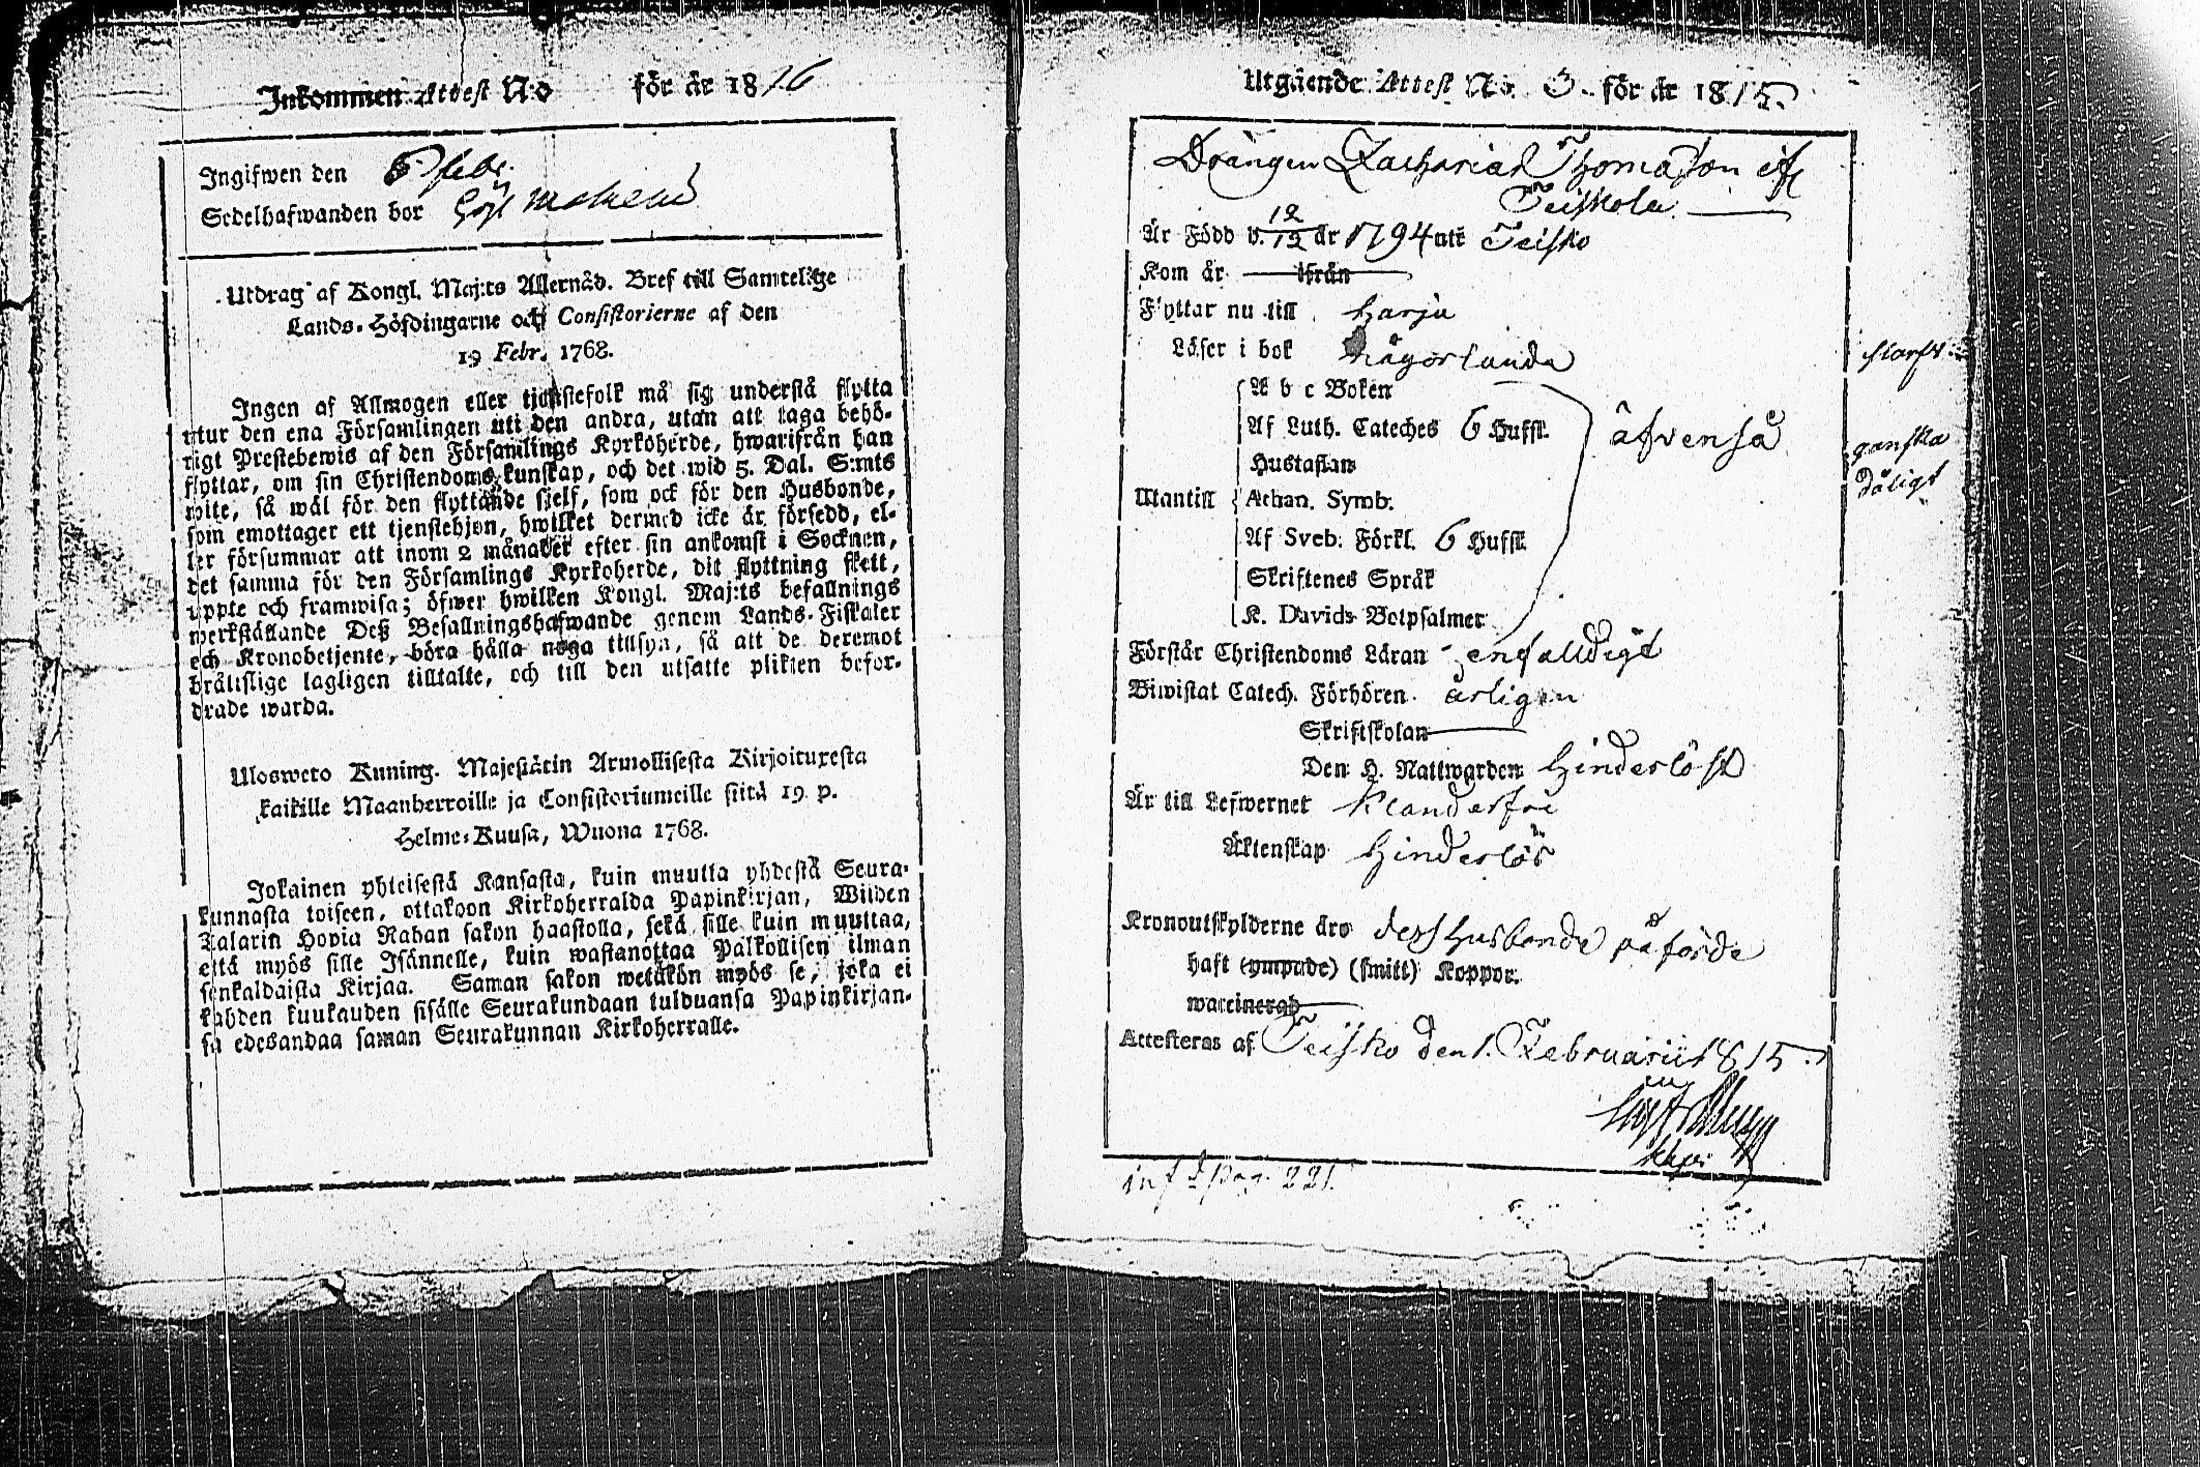 Inkommen Attest N:o för år 1816
Ingifwen den 5 febr.
Sedelhafwanden bor
Utdrag af Kongl. Maj:ts Allernåd. Bref till Samtelige
Lands-Höfdingarne och Consistorierne af den
19 Febr. 1768.
Ingen af Allmogen eller tjenstefolk må sig understå flytta
utur den ena Församlingen uti den andra, utan att taga behö-
rigt Prestebewis af den Församlings Kyrkoherde, hwarifrån han
flyttar, om sin Christendoms kunskap, och det wid 5. Dal. S:mts
wite, så wäl för den flyttande sjelf, som ock för den Husbonde,
som emottager ett tjenstehjon, hwilket dermed icke är försedd, el-
ler försummar att inom 2 månader efter sin ankomst i Socknen,
det samma för den Församlings Kyrkoherde, dit flyttning skett,
uppte och framwisa; öfwer hwilken Kongl. Maj:ts befallnings
werkställande Deß Befallningshafwande genom Lands-Fiskaler
och Kronobetjente, böra hålla noga tillsyn, så att de deremot
bråttslige lagligen tilltalte, och till den utsatte plikten befor-
drade warda.
Ulosweto Kuning. Majestätin Armollisesta Kirjoituxesta
kaikille Maanherroille ja Consistoriumeille siitä 19 p.
Helme-Kuusa, Wuona 1768.
Jokainen yhteisestä Kansasta, kuin muutta yhdestä Seura-
kunnasta toiseen, ottakoon Kirkoherralda Papinkirjan, Wiiden
Talarin Hopia Rahan sakon haastolla, sekä sille kuin muuttaa,
että myös sille Isännelle, kuin wastanottaa Palkollisen ilman
senkaldaista Kirjaa. Saman sakon wetäkön myös se, joka ei
kahden kuukauden sisälle Seurakundaan tulduansa Papinkirjan-
sa edesandaa saman Seurakunnan Kirkoherralle.
Utgående Attest No. 3. för år 1815.
Drängen Zacharias Thomasson ifr
Teiskola
Är Född d. 12/12 år 1794 uti Teisko
Kom år ifrån
Flyttar nu till Harju
Läser i bok någorlunda
svarft
A b c Boken
Af Luth. Cateches 6 Hufst. äfvenså
ganska
Hustaflan
dåligt
Utantill Athan. Symb.
Af Sveb. Förkl. 6 Hufst.
Skriftenes Språk
K. Davids Botpsalmer
Förstår Christendoms Läran enfalldigt
Biwistat Catech. Förhören årligen
Skriftskolan
Den H. Nattwarden Hinderlöst
Är till Lefwernet Klanderfri
Äktenskap Hinderlös
Kronoutskylderne äro dess husbonde påförde
haft (ympade) (smitt) Koppor.
waccinerad
Attesteras af Teisko den 1. Februarii 1815.
inf. pag. 221.